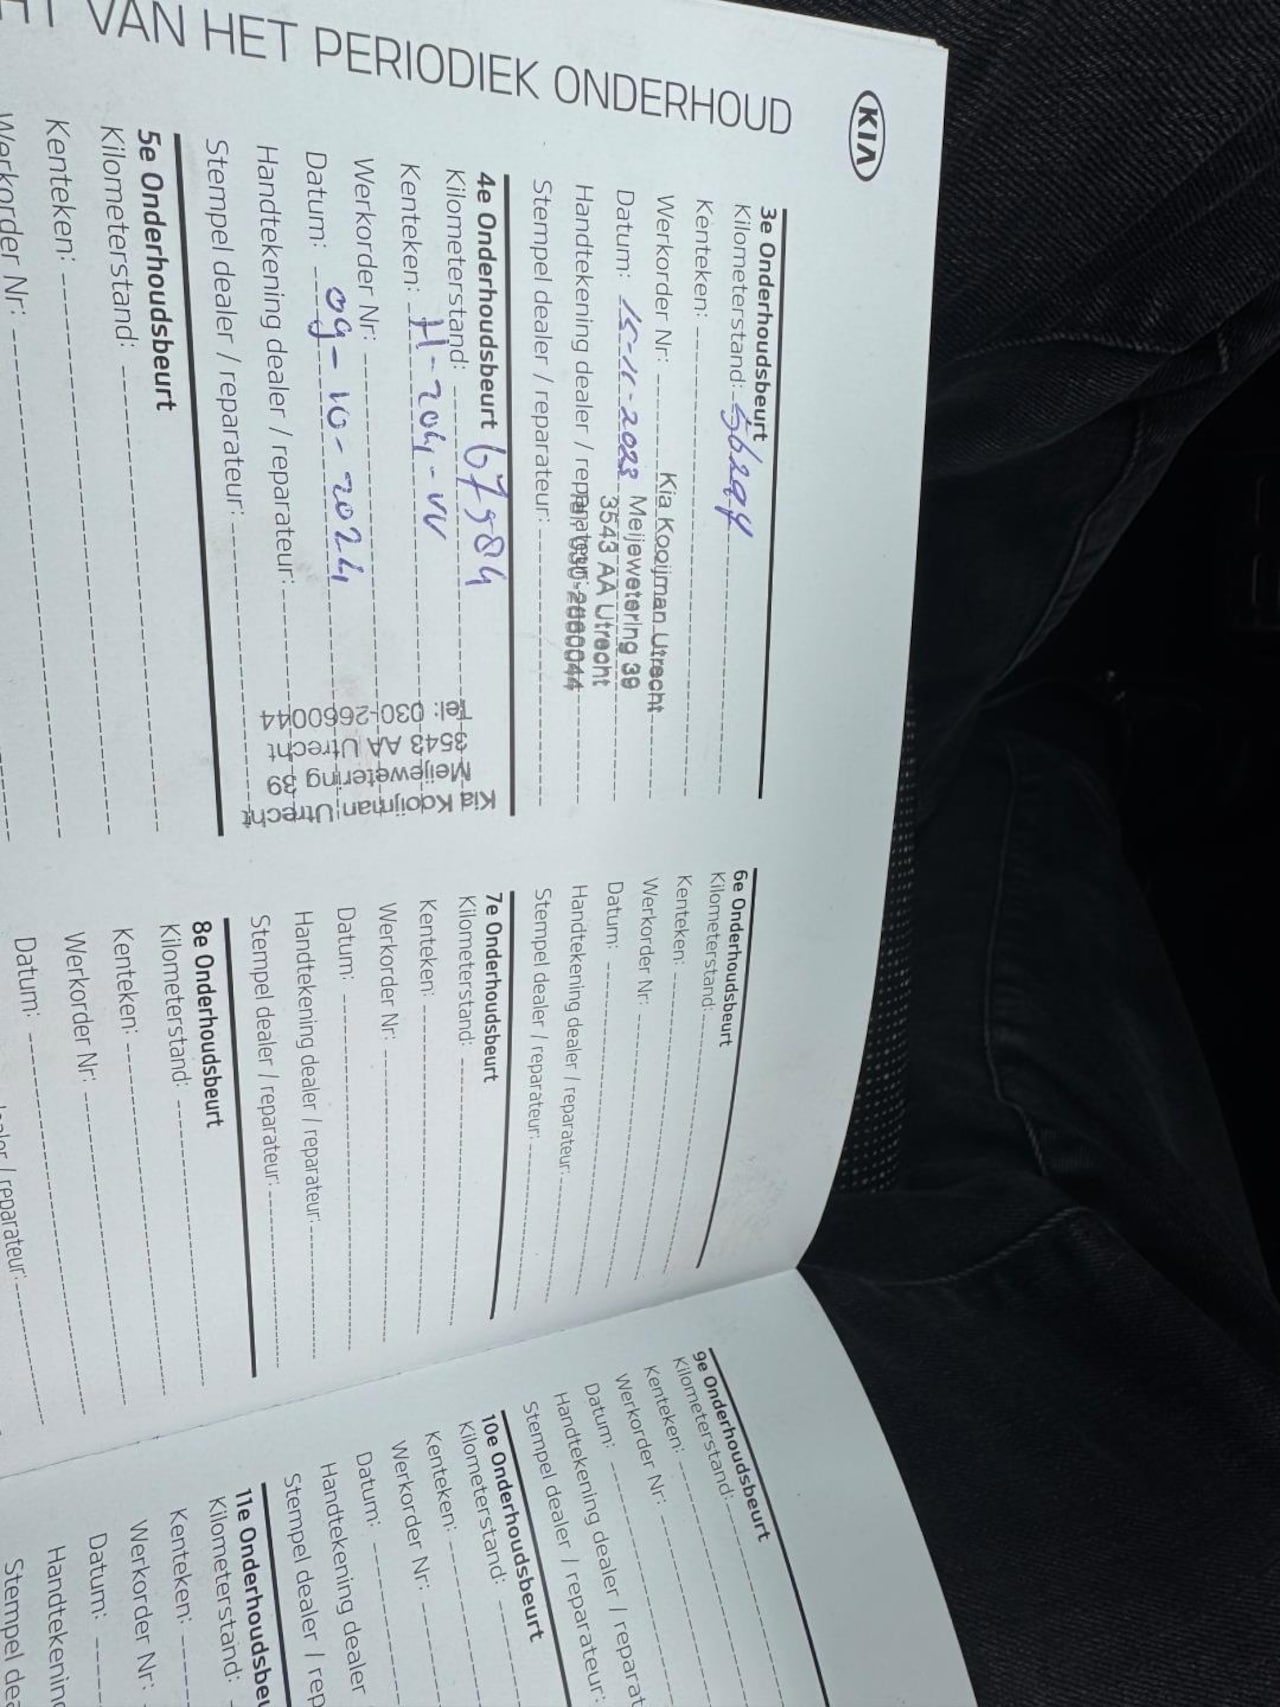 VAN HET PERIODIEK ONDERHOUD
KIA
3e Onderhoudsbeurt
Kilometerstand: 56294
Kenteken:
Werkorder Nr:
Datum: 15-11-2023
Handtekening dealer / reparateur:
Stempel dealer / reparateur:
Kia Kooijman Utrecht
Meijewetering 39
3543 AA Utrecht
Tel: 030-2660044
4e Onderhoudsbeurt
Kilometerstand: 67984
Kenteken: H-204-VV
Werkorder Nr:
Datum: 09-10-2024
Handtekening dealer / reparateur:
Stempel dealer / reparateur:
Kia Kooijman Utrecht
Meijewetering 39
3543 AA Utrecht
Tel: 030-2660044
5e Onderhoudsbeurt
Kilometerstand:
Kenteken:
Werkorder Nr:
6e Onderhoudsbeurt
Kilometerstand:
Kenteken:
Werkorder Nr:
Datum:
Handtekening dealer / reparateur:
Stempel dealer / reparateur:
7e Onderhoudsbeurt
Kilometerstand:
Kenteken:
Werkorder Nr:
Datum:
Handtekening dealer / reparateur:
Stempel dealer / reparateur:
8e Onderhoudsbeurt
Kilometerstand:
Kenteken:
Werkorder Nr:
Datum:
/ reparateur:
9e Onderhoudsbeurt
Kilometerstand:
Kenteken:
Werkorder Nr:
Datum:
Handtekening dealer / reparat
Stempel dealer / reparateur:
10e Onderhoudsbeurt
Kilometerstand:
Kenteken:
Werkorder Nr:
Datum:
Handtekening dealer
Stempel dealer / rep
11e Onderhoudsbeu
Kilometerstand:
Kenteken:
Werkorder Nr:
Datum:
Handtekening
Stempel dea